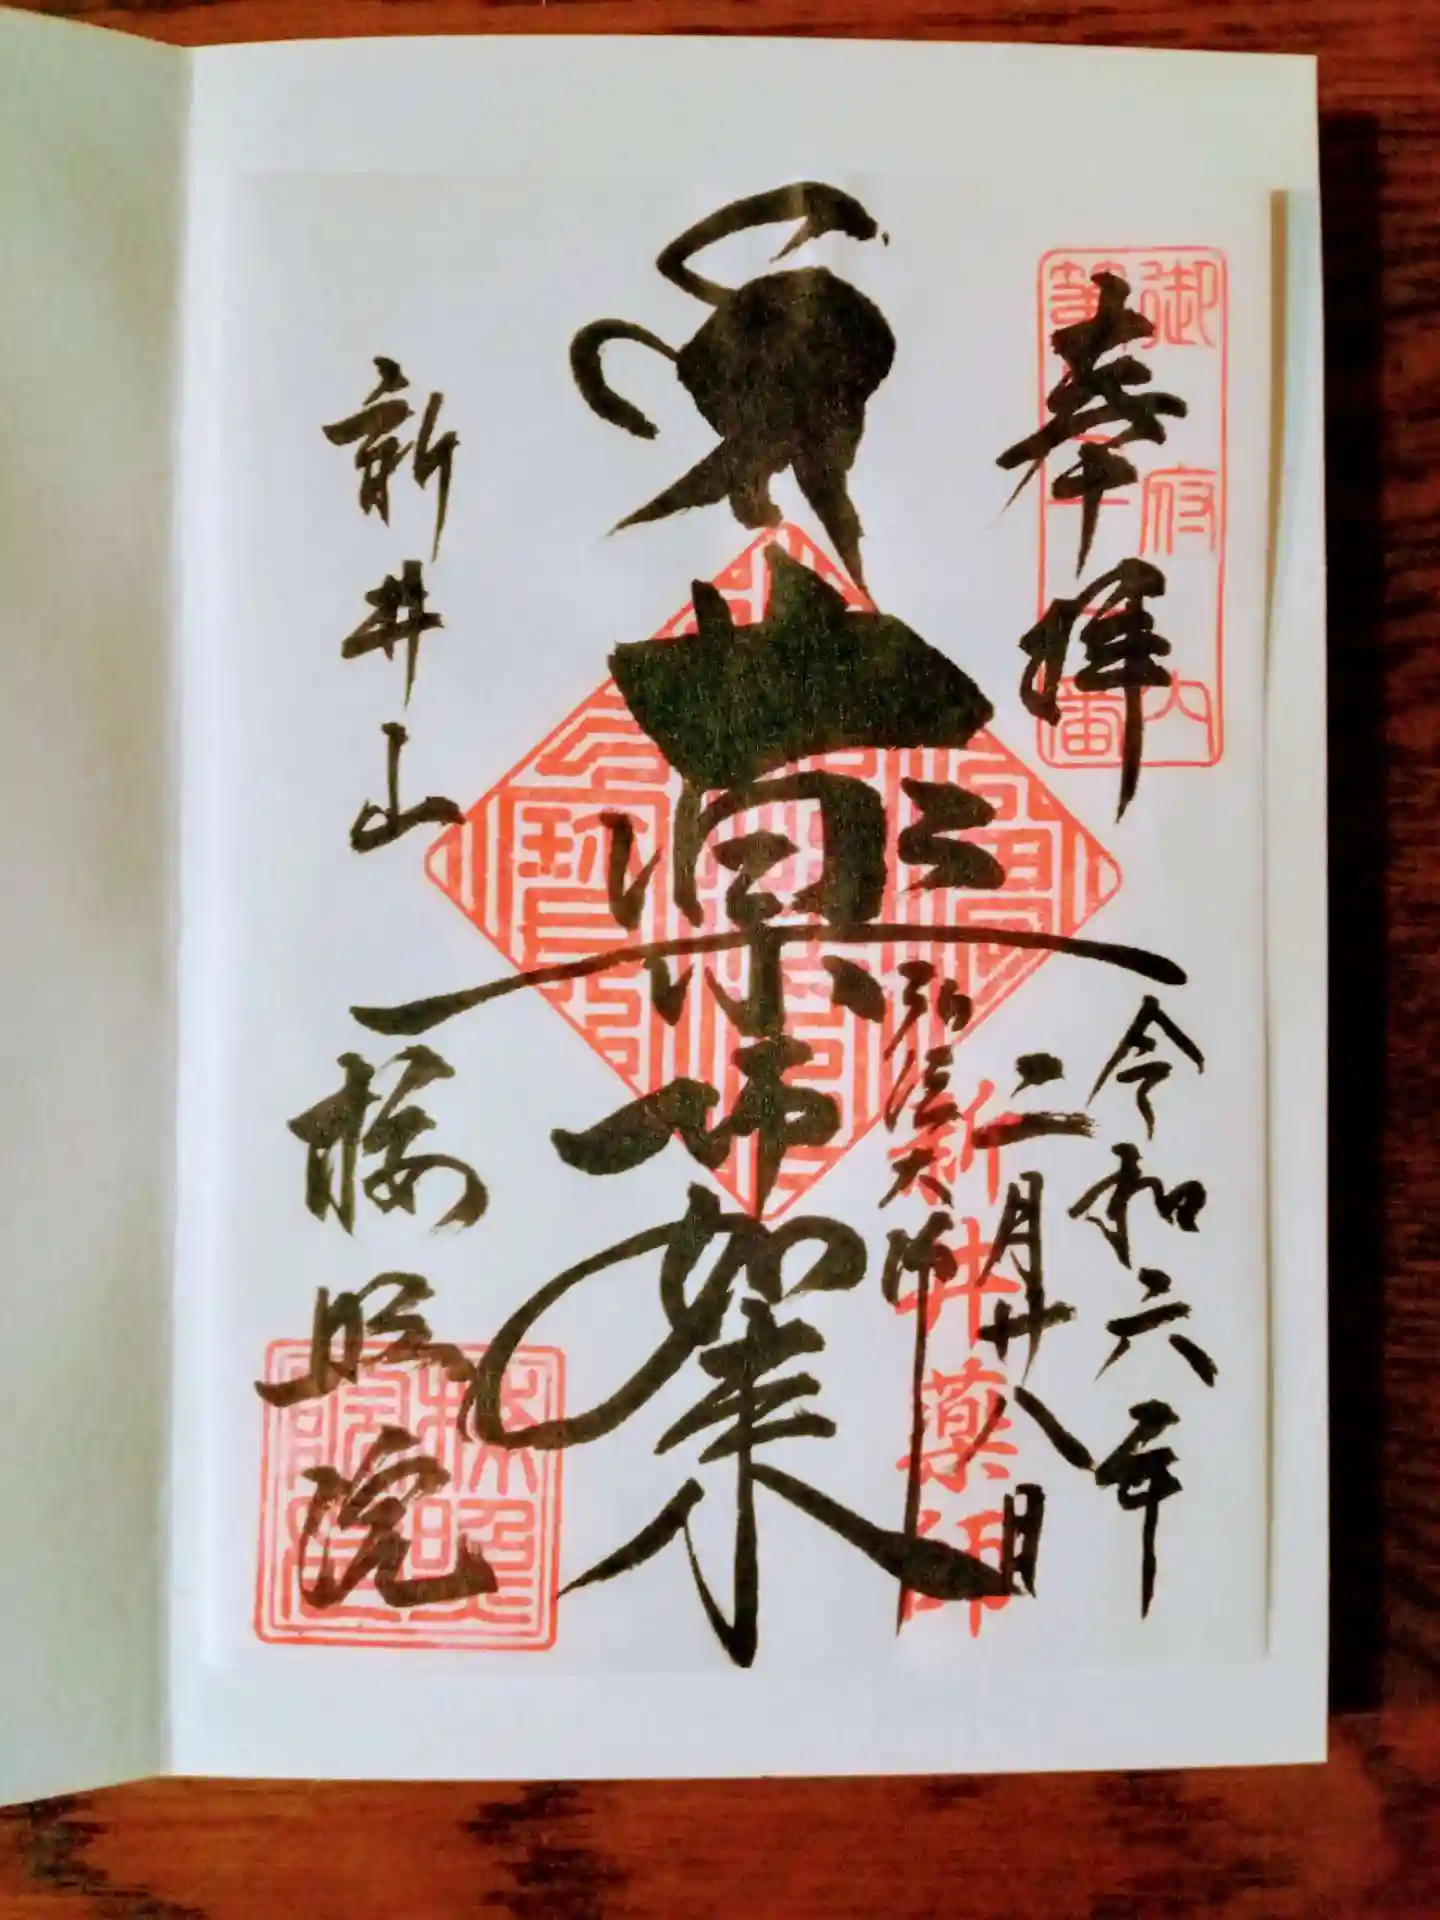 奉拝
御府内
令和六年
二月廿八日
新井薬師
弘法大師
薬師如来
新井山
梅照院